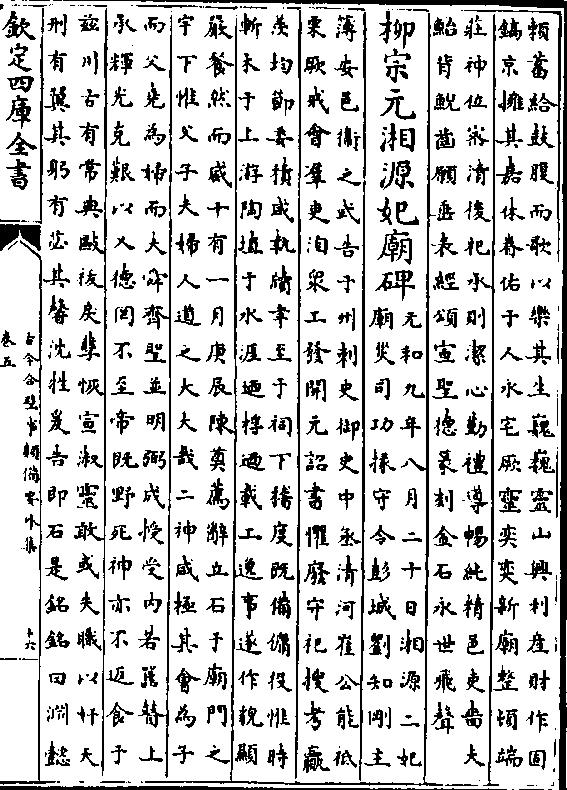 賴蓄給鼓腹而歌以樂其生巍巍靈山興利産財作固
鎬京擁其嘉休眷佑于人永宅厥靈奕奕新廟整頓端
莊神位密清後祀承則潔心勤禮導暢純精邑吏耆夫
鮐背鯢齒願垂表經頌宣聖德篆刻金石永世飛聲
柳宗元湘源妃廟碑
元和九年八月二十日湘源二妃
廟災司功掾守令彭城劉知剛主
薄安邑衛之武告于州刺史御史中丞清河崔公能祗
栗厥戒會羣吏洎衆工發開元詔書懼廢守祀搜考贏
羨均節委積咸執牘聿至于祠下稽度既備傭役惟時
斬木于上游陶埴于水涯迺桴迺載工逸事遂作貌顯
嚴餐然而威十有一月庚辰陳奠薦辭立石于廟門之
宇下惟父子夫婦人道之大大哉二神咸極其會為子
而父堯為婦而夫舜齊聖並明弼成授受内若嚚瞽上
承輝光克艱以乂德罔不至帝既野死神亦不返食于
兹川古有常典敺祓戾孽恢宣淑靈敢或失職以奸天
刑有翼其躬有苾其馨沈牲爰告即石是銘銘曰淵懿
欽定四庫全書
古今合璧事類備要外集
卷五
十六